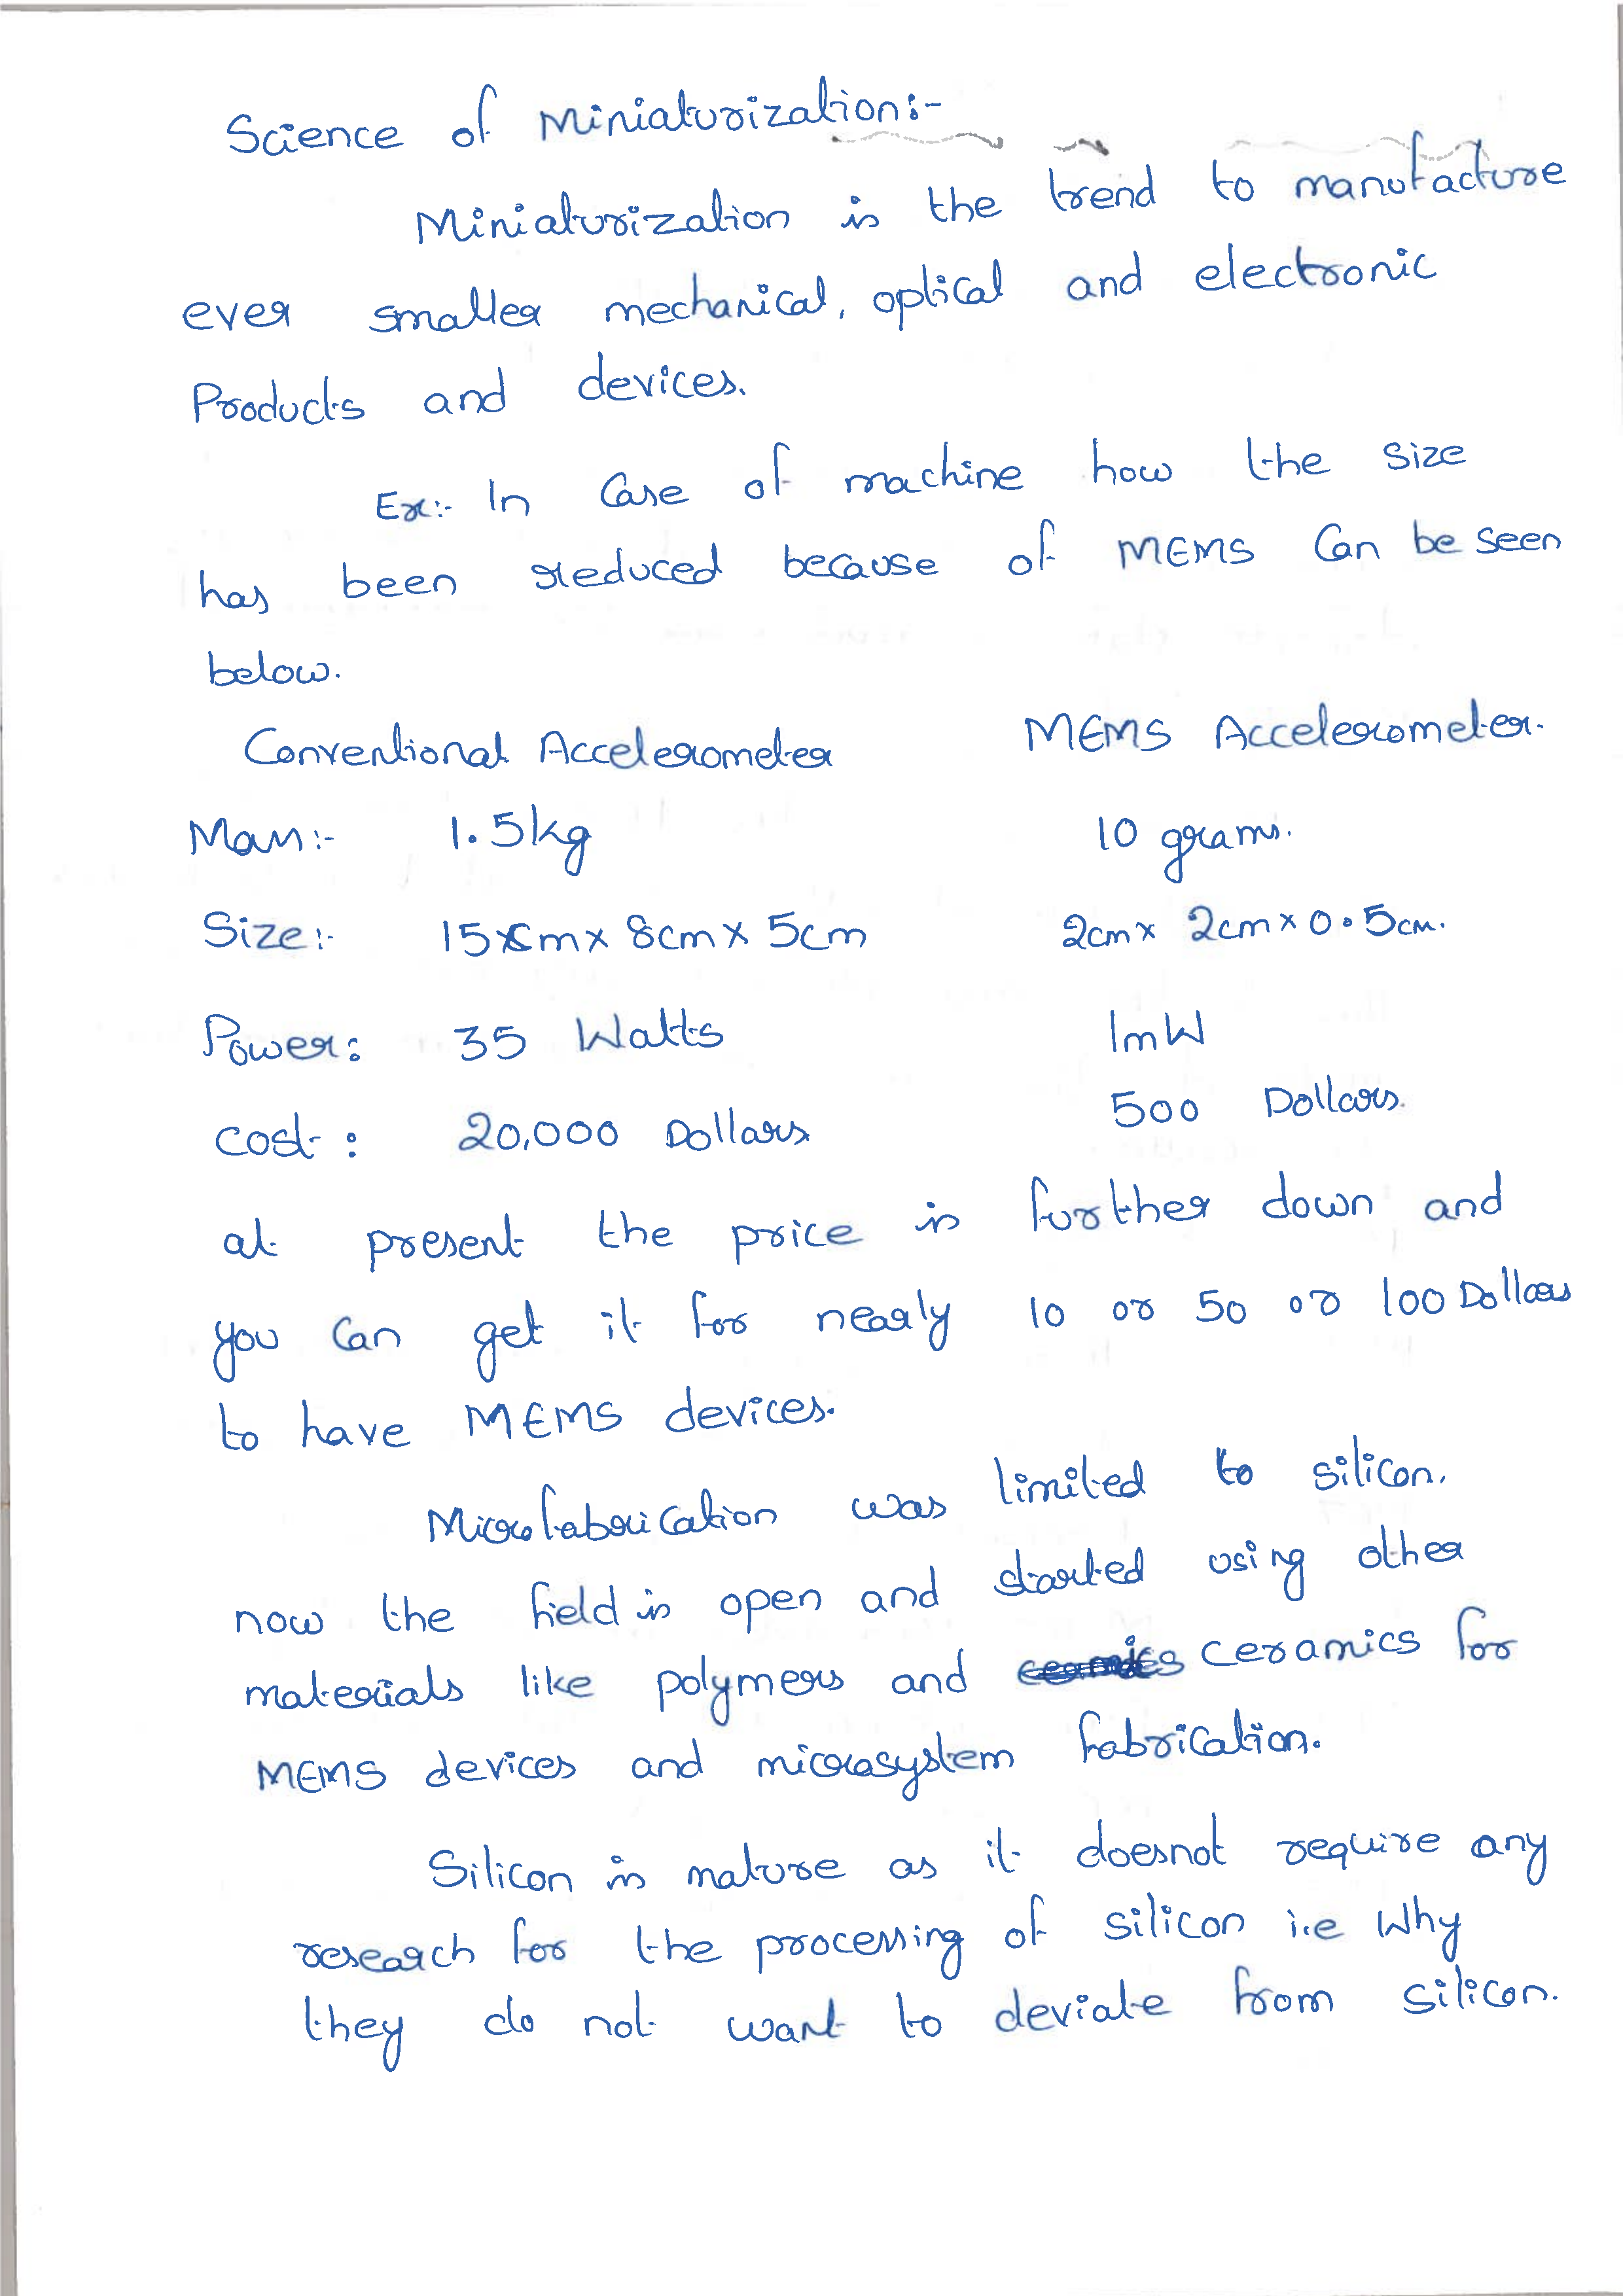 Science of Miniaturization:-
Miniaturization is the trend to manufacture
ever smaller mechanical, optical and electronic
Products and devices.
Ex:- In Case of machine how the size
has been reduced because of MEMS Can be seen
below.
Conventional Accelerometer MEMS Accelerometer.
Mass:- 1.5kg 10 grams.
Size:- 15cm x 8cm x 5cm 2cm x 2cm x 0.5cm.
Power: 35 Watts 1mW
Cost: 20,000 Dollars 500 Dollars.
at present the price is further down and
you Can get it for nearly 10 or 50 or 100 Dollars
to have MEMS devices.
Microfabrication was limited to silicon.
now the field is open and started using other
materials like polymers and ceramics for
MEMS devices and microsystem fabrication.
Silicon is mature as it doesnot require any
research for the processing of silicon i.e Why
they do not want to deviate from silicon.